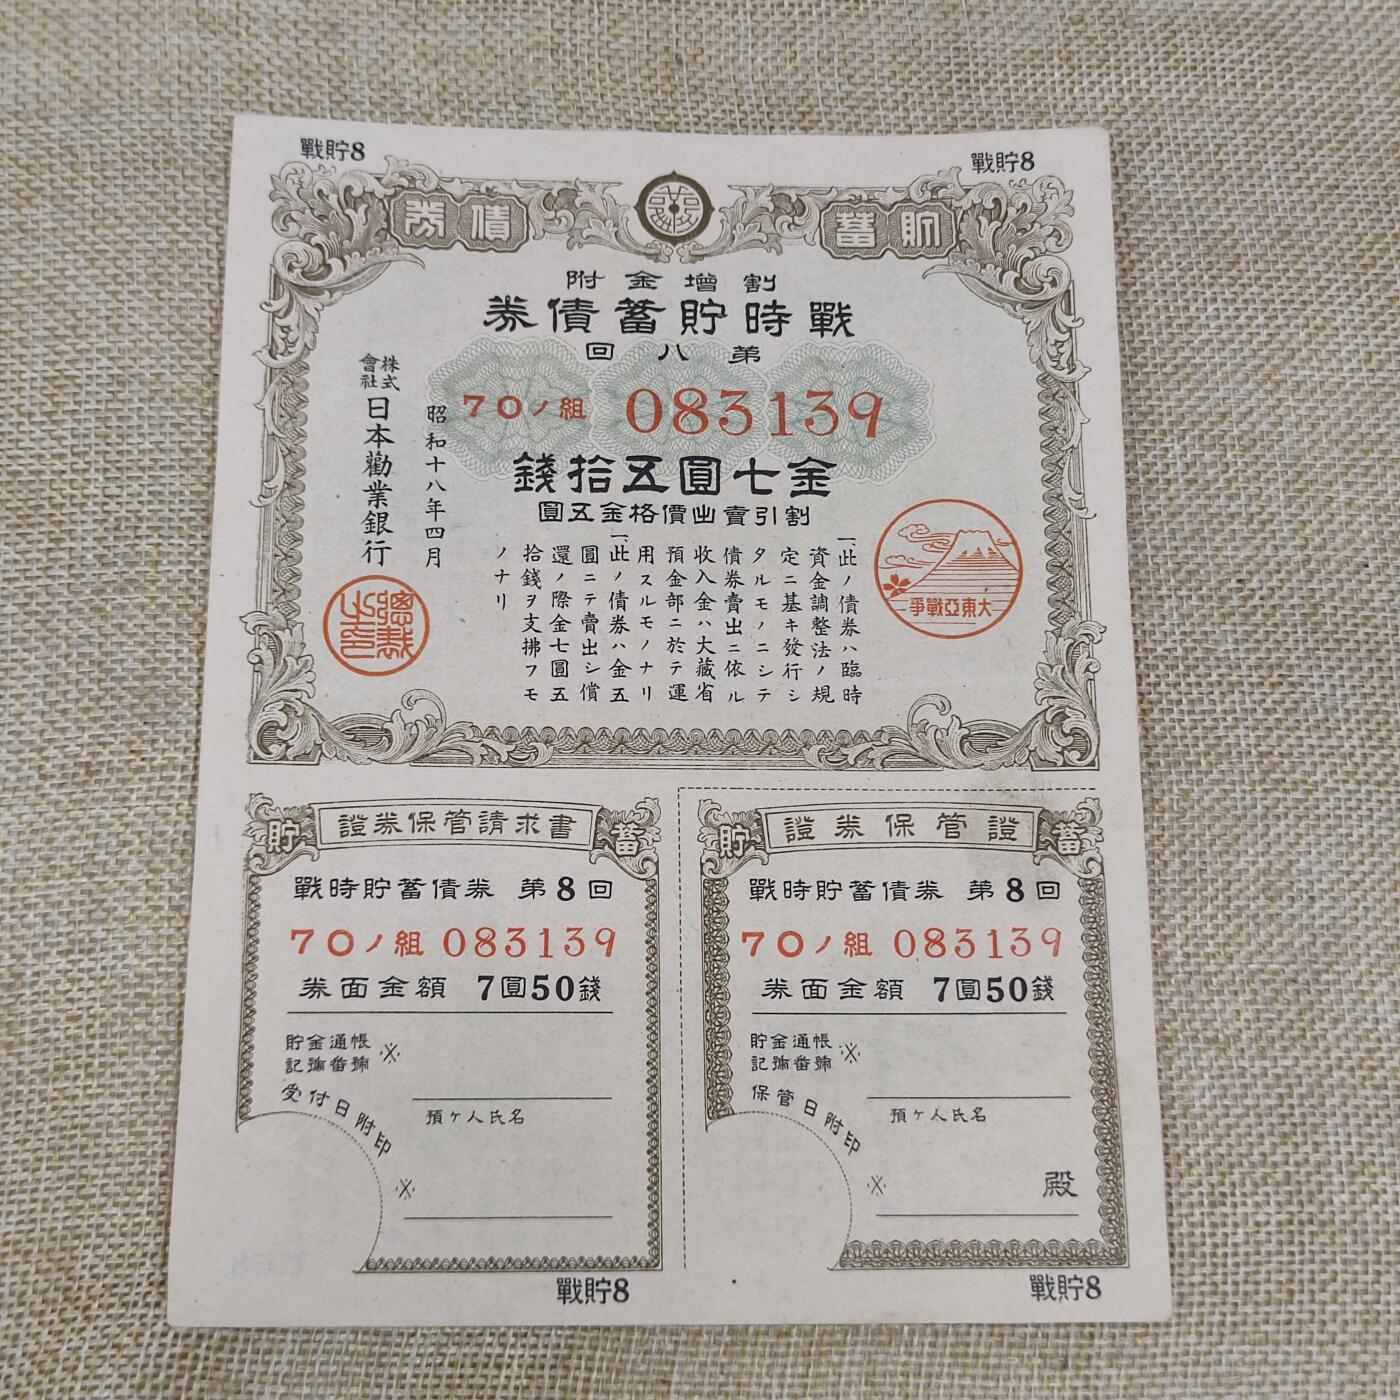 戰貯8
戰貯8
貯蓄
債券
割增金附
戰時貯蓄債券
第八回
70ノ組 083139
金七圓五拾錢
割引賣出價格金五圓
大東亞戰爭
一、此ノ債券ハ臨時
資金調整法ノ規
定ニ基キ發行シ
タルモノニシテ
債券賣出ニ依ル
收入金ハ大藏省
預金部ニ於テ運
用スルモノナリ
一、此ノ債券ハ金五
圓ニテ賣出シ償
還ノ際金七圓五
拾錢ヲ支拂フモ
ノナリ
昭和十八年四月
株式會社日本勸業銀行
總裁之印
貯 證券保管請求書 蓄
戰時貯蓄債券 第8回
70ノ組 083139
券面金額 7圓50錢
貯金通帳
記號番號 ※
受付日附印
預ケ人氏名
※
戰貯8
貯 證券保管證 蓄
戰時貯蓄債券 第8回
70ノ組 083139
券面金額 7圓50錢
貯金通帳
記號番號 ※
保管日附印
預ケ人氏名
※
殿
戰貯8